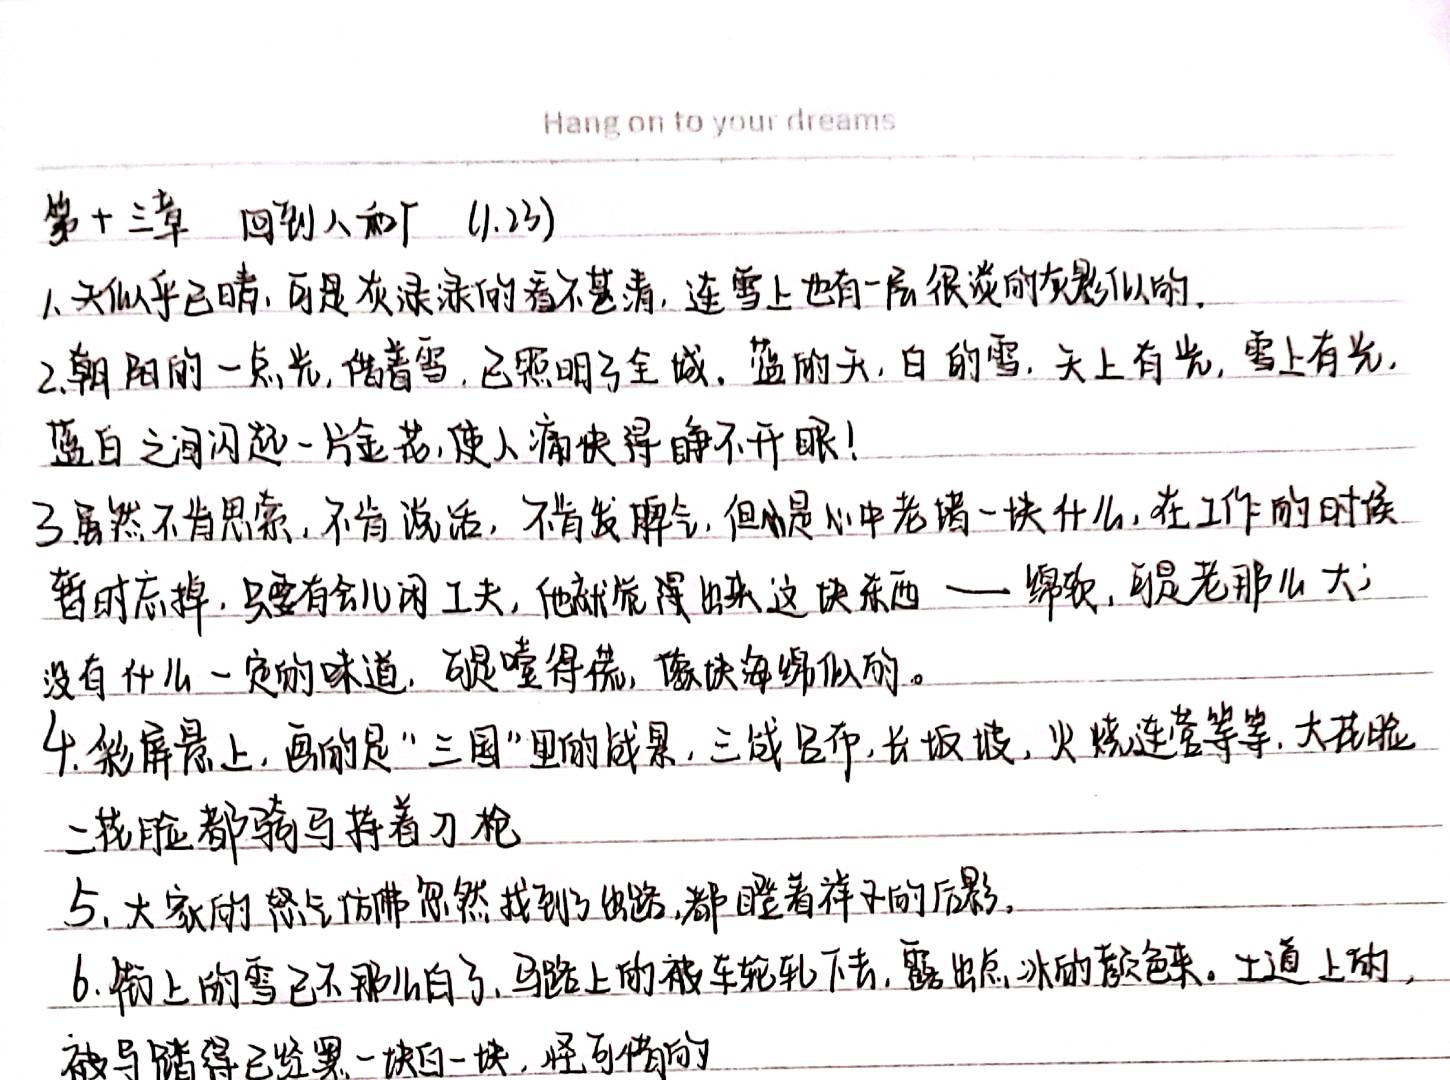 Hang on to your dreams
第十三章 回到人和厂 (1.23)
1、天似乎已晴,可是灰渌渌的看不甚清,连雪上也有一层很淡的灰影似的.
2.朝阳的一点光,借着雪,已照明了全城。蓝的天,白的雪,天上有光,雪上有光,
蓝白之间闪起一片金花,使人痛快得睁不开眼!
3.虽然不肯思索,不肯说话,不肯发脾气,但是心中老堵一块什么,在工作的时候
暂时忘掉,只要有会儿闲工夫,他就觉得出来这块东西——绵软,可是老那么大;
没有什么一定的味道,可是噎得慌,像块海绵似的。
4.彩屏悬上,画的是“三国”里的战景,三战吕布,长坂坡,火烧连营等等,大花脸
二花脸都骑马持着刀枪
5、大家的怒气仿佛忽然找到了出路,都瞪着祥子的后影.
6.街上的雪已不那么白了,马路上的被车轮轧下去,露出点冰的颜色来。土道上的,
被马踏得已经黑一块白一块,怪可惜的